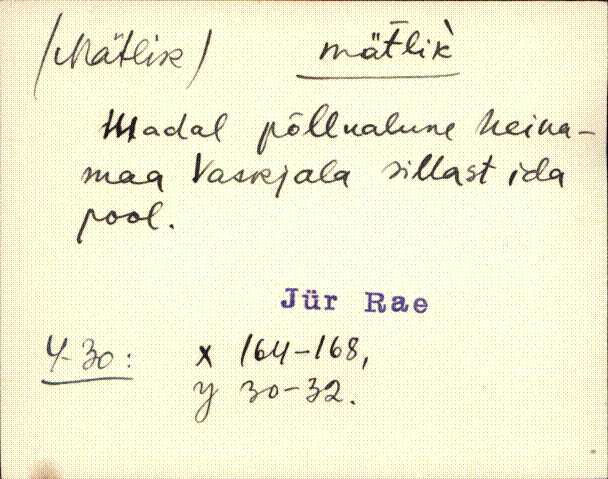 (Mätlik) mätlik̀
Madal põllualune heina-
maa Vaskjala sillast ida
pool.
Jür Rae
4-30: x 164-168,
y 30-32.